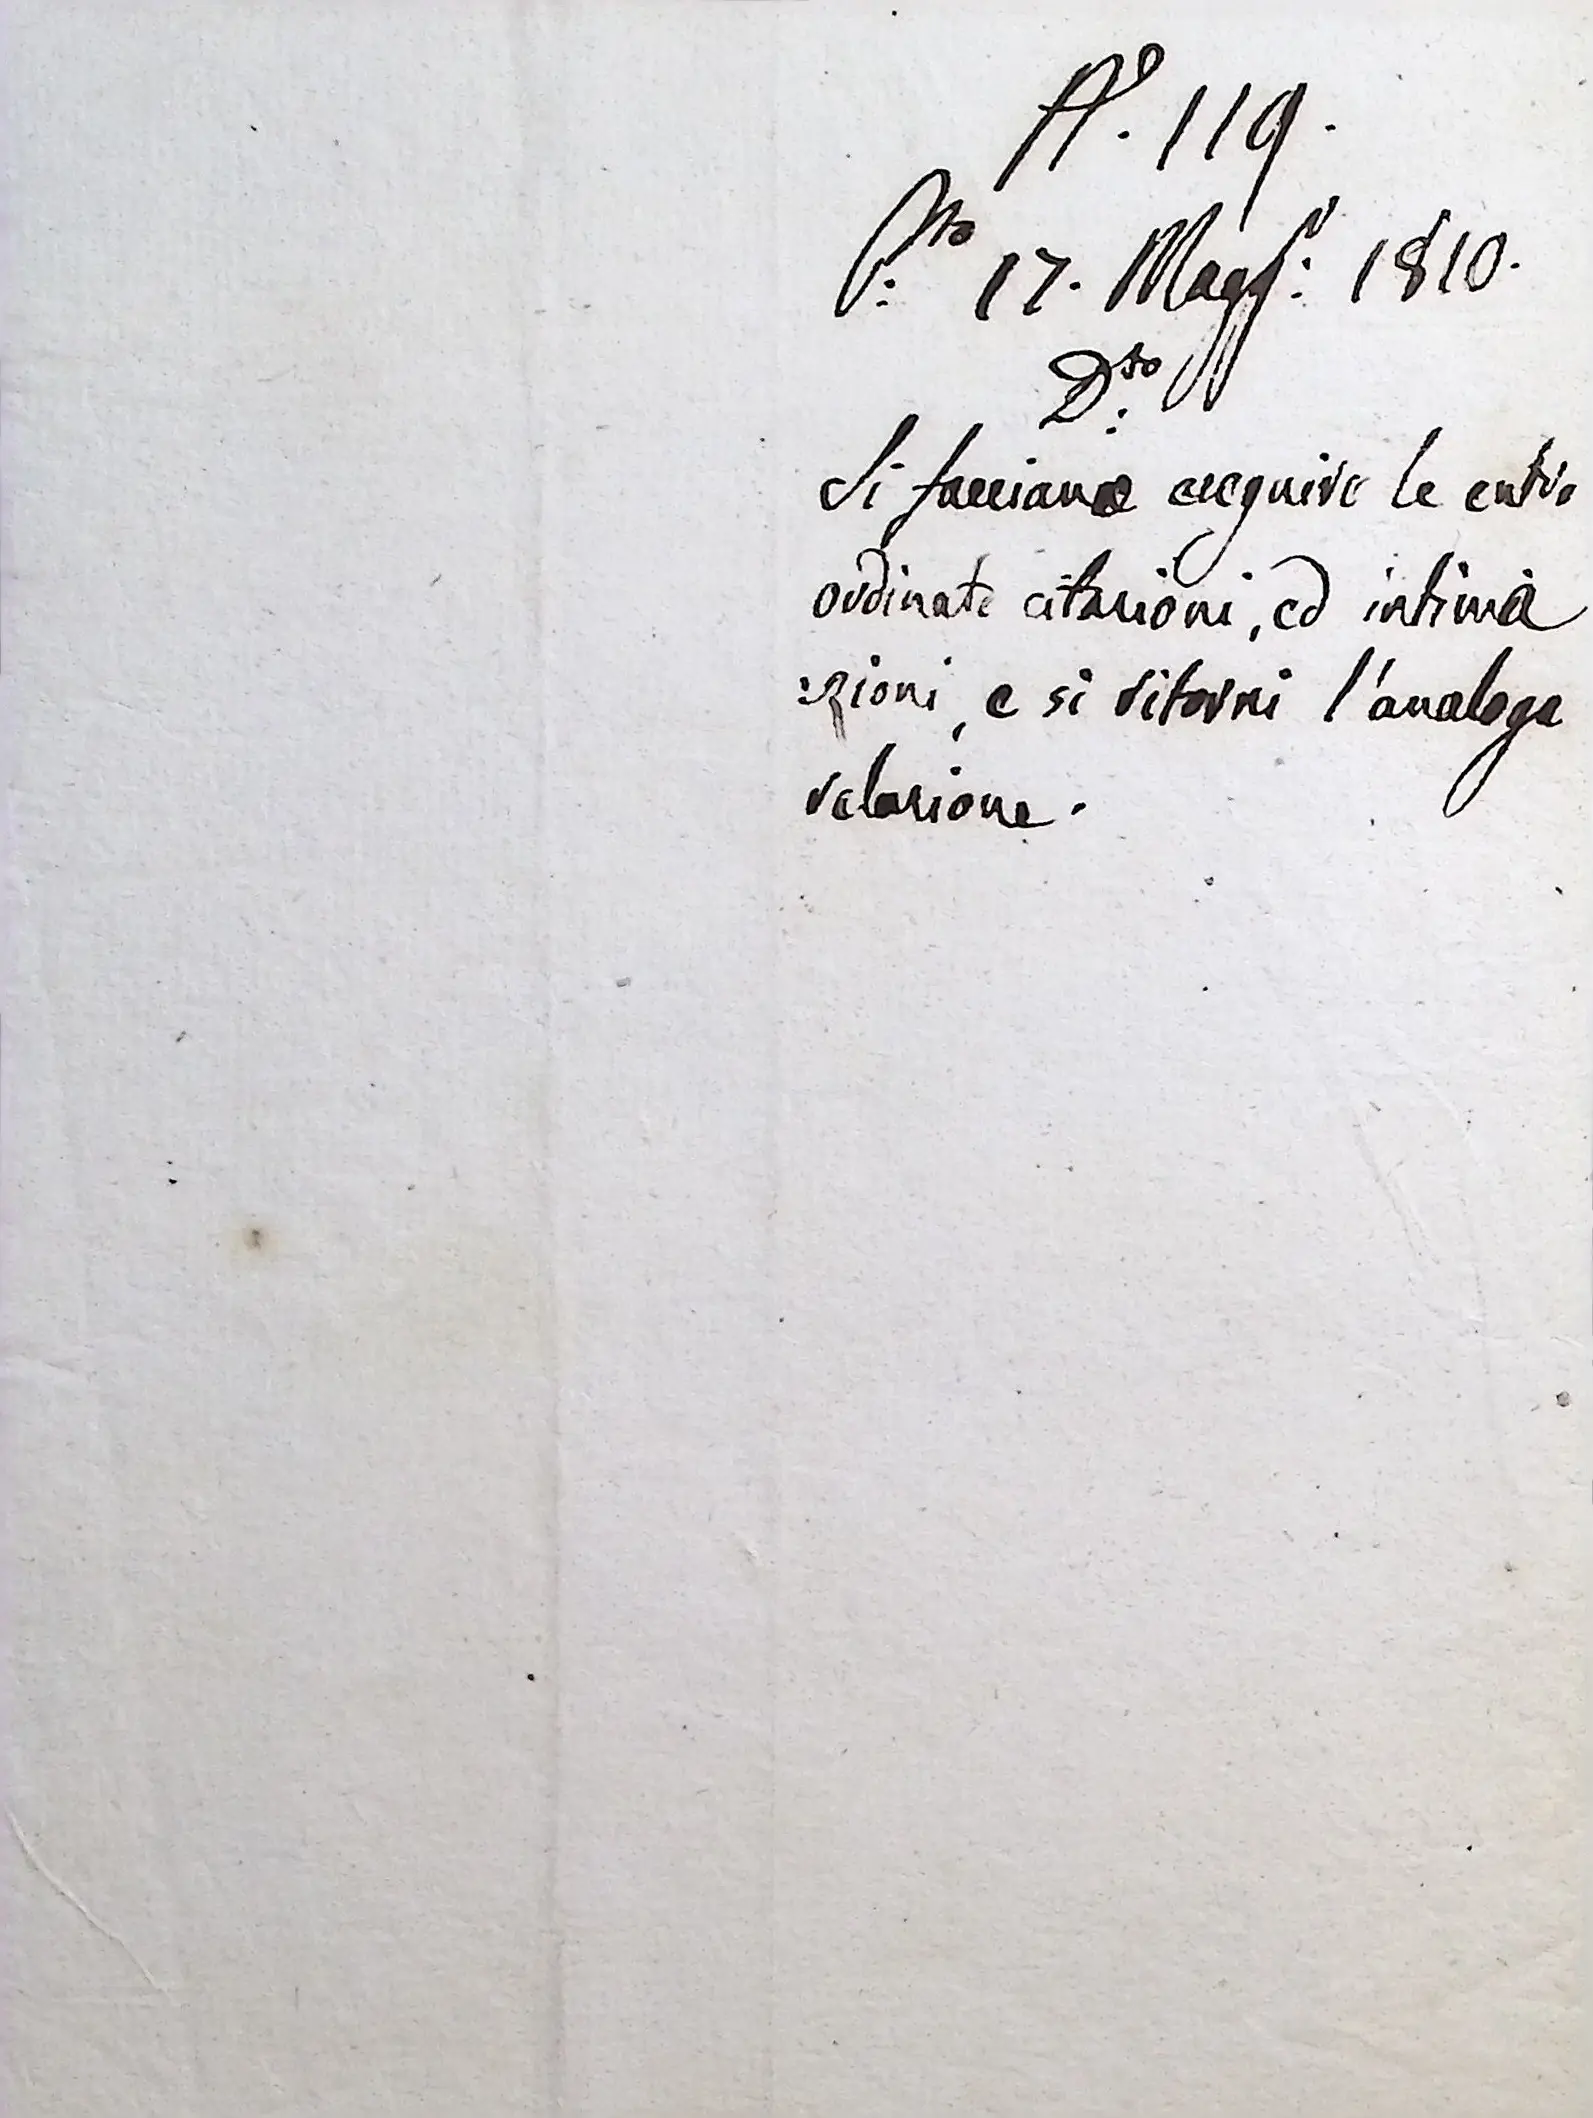 N°. 119.
P:to 17. Magg:o 1810.
D:to
Si facciano eseguire le entro
ordinate citazioni, ed intima
:zioni, e si ritorni l'analoga
relazione.